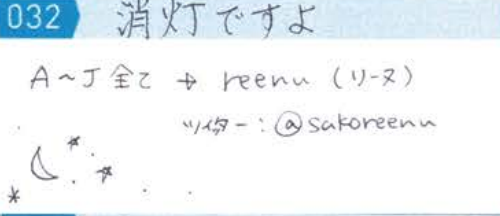 032 消灯ですよ
A~J 全て → reenu (リーヌ)
ツイッター:@sakoreenu